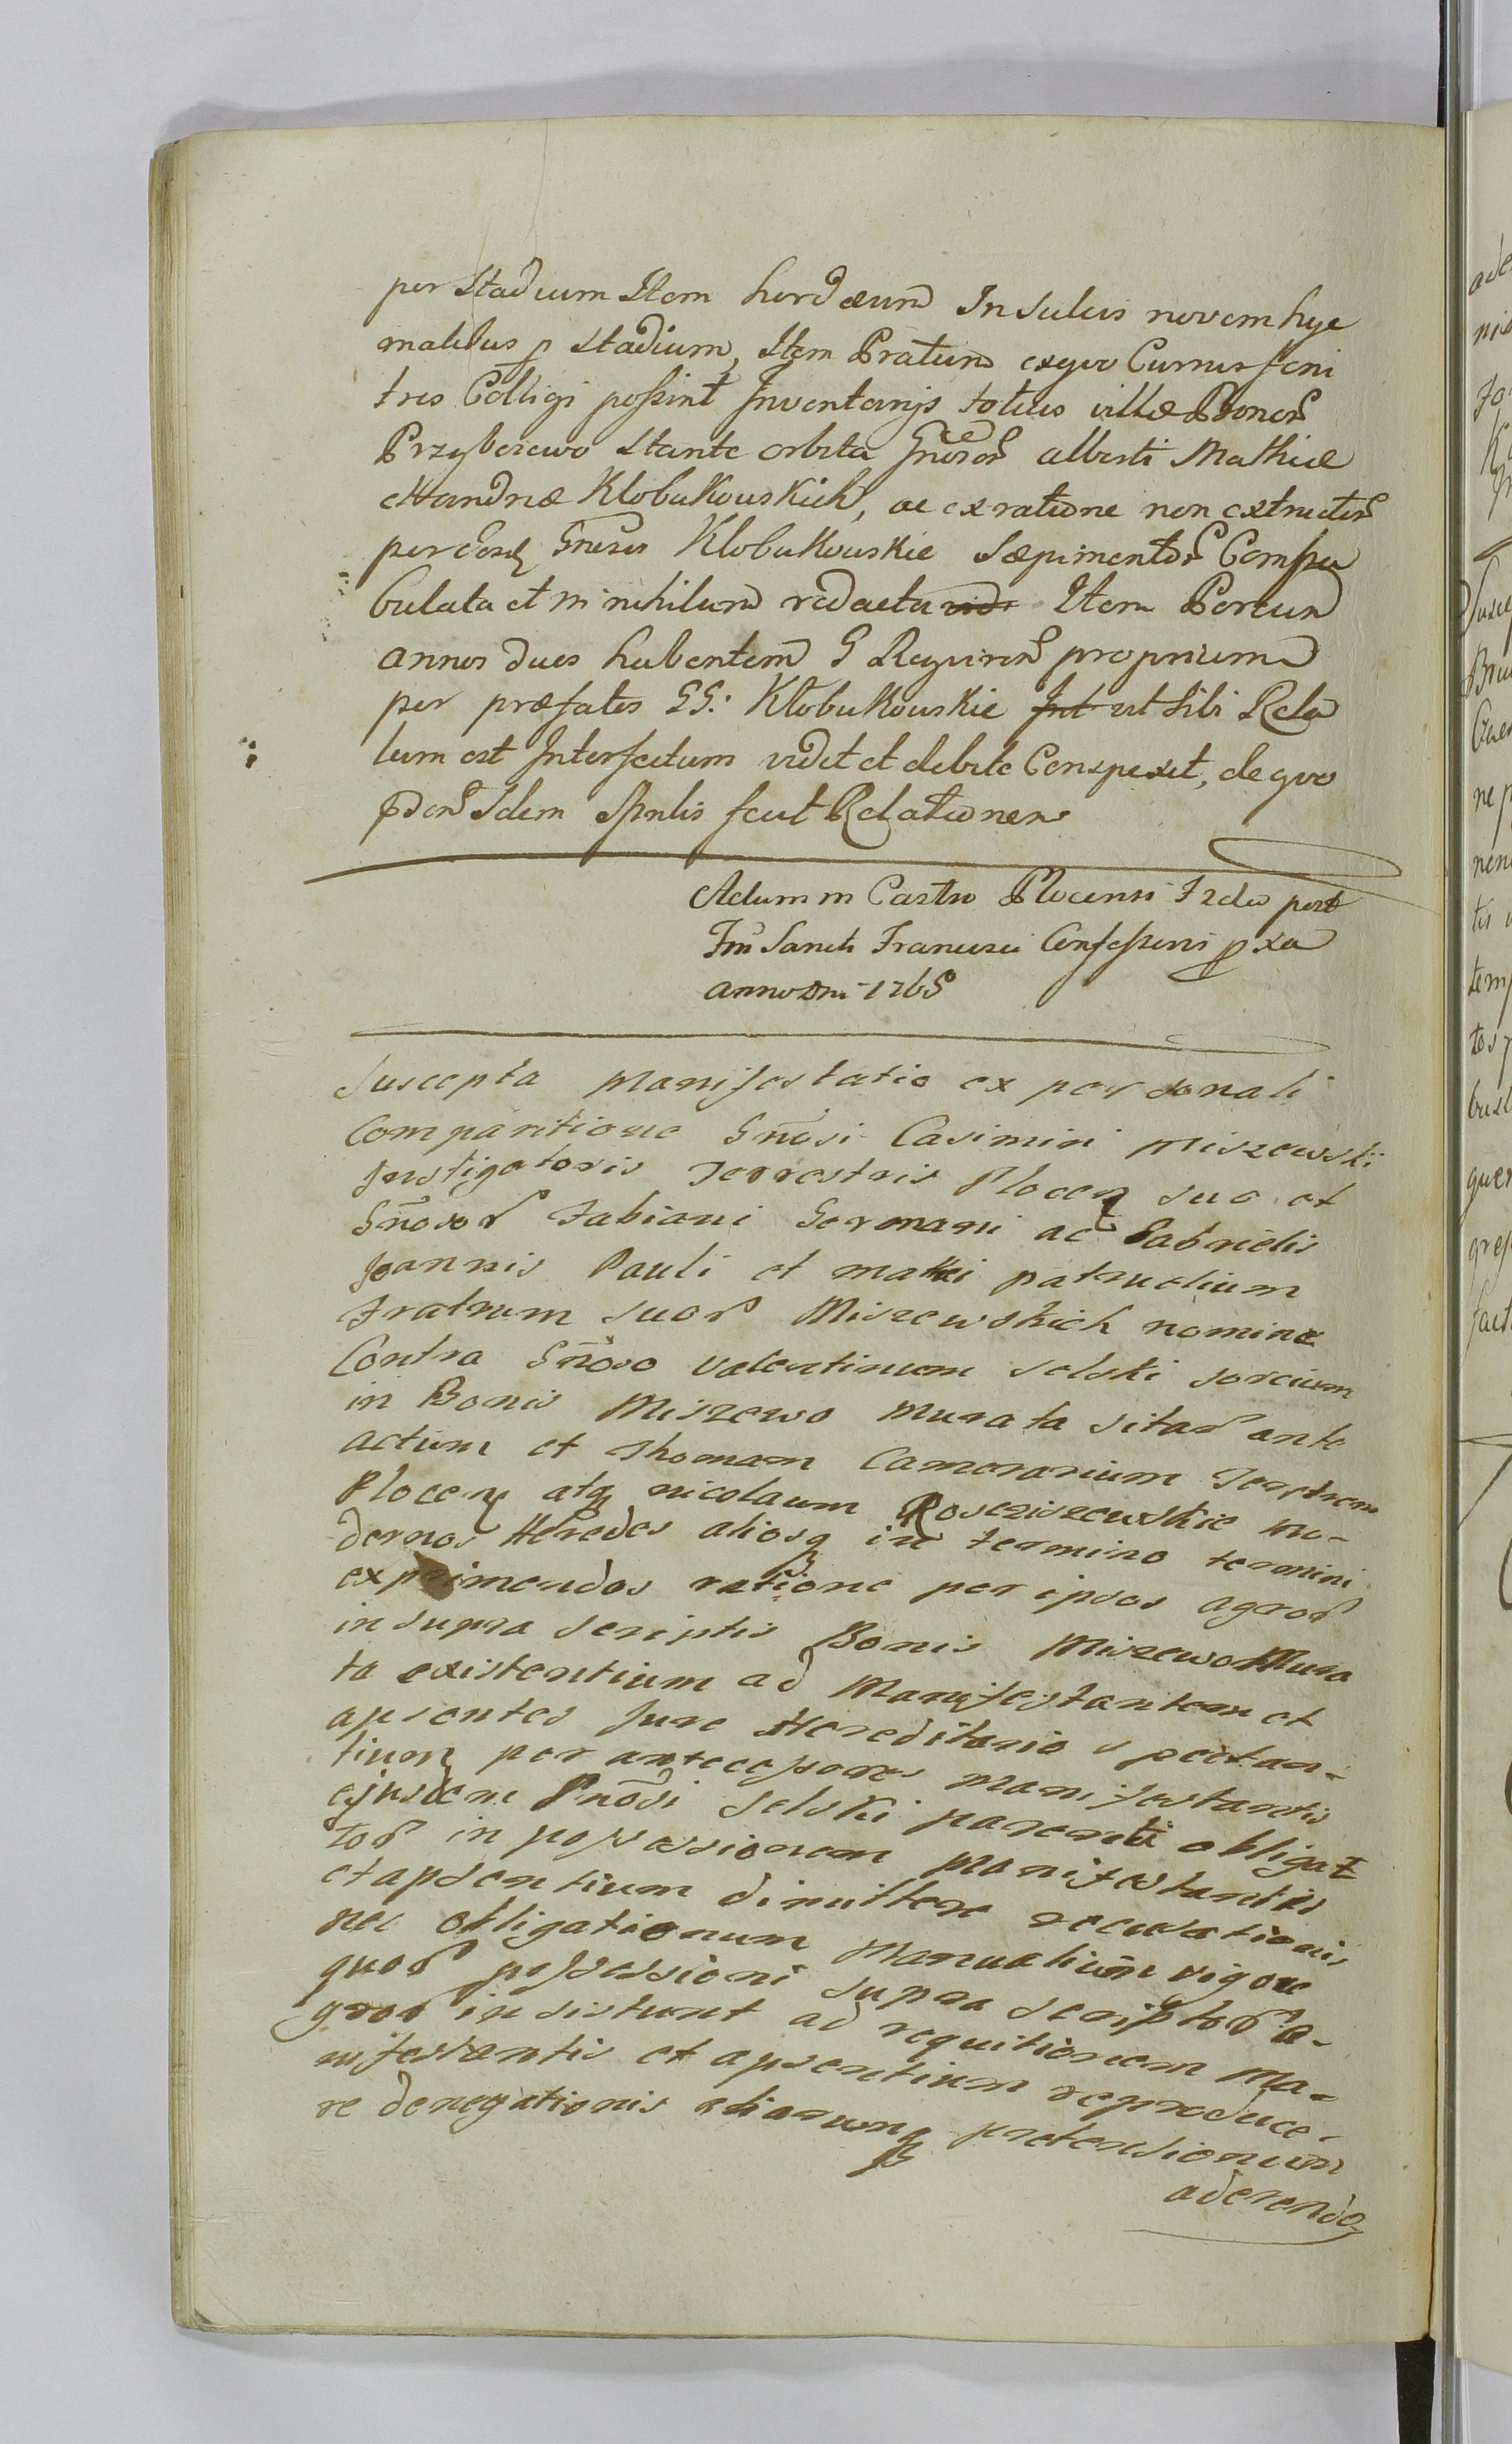 per Stadium Item hordæum In Sulcis novem hye
malibus p Stadium, Item Pratum exquo Currus feni
tres Colligi possint Inventarijs totius villæ Bonor
Przyborowo Stante orbita Gnosor alberti Mathiæ
Andreæ Klobukowskich, ac ex ratione non extructor
per eosq Gnosos Klobukowskie Sæpimentor Compa
bulata et in nihilum redacta Item Porcum
annos duos habentem G Requiren proprium
per præfatos GG: Klobukowskie Int ut sibi Rela
tum est Interfectum vidit et debite Conspexit, de quo
pdor Idem Mnlis fecit Relationem
Actum in Castro Plocensi Fr 2da post
Fm Sancti Francisci Confessoris pxa
anno Dni 1765
Suscepta Manifestatio ex personali
Comparitione Gnosi Casimiri Miszewski
Instigatoris Terrestris Plocen suo et
Gnosor Fabiani Germani ac Gabrielis
Joannis Pauli et Mathei patruelium
Fratrum suor Miszewskich nomine
Contra Gnoso valentinum Selski sorcium
in Bonis Miszewo Murata sitar ante
actum et Thomam Camerarium Terstrem
Plocen atq nicolaum Rosciszewskie mo-
dernos Heredes aliosq in termino termini
exprimendos ratione per ipsos agror
in supra scriptis Bonis Miszewo Mura
ta existentium ad Manifestantem et
apsentes Jure Hereditario spectan-
tium per antecessores manifestantis
ejusdem Gnosi Selski parenti obligat
tor in possessionem Manifestantis
et apsentium dimittere recusationis
nec obligationum Manualium vigore
quor possessioni supra scriptor a-
gror insistunt ad requitionem Ma-
nifestantis et apsentium reproduce-
re denegationis aliarumq pretensionum
aderendo